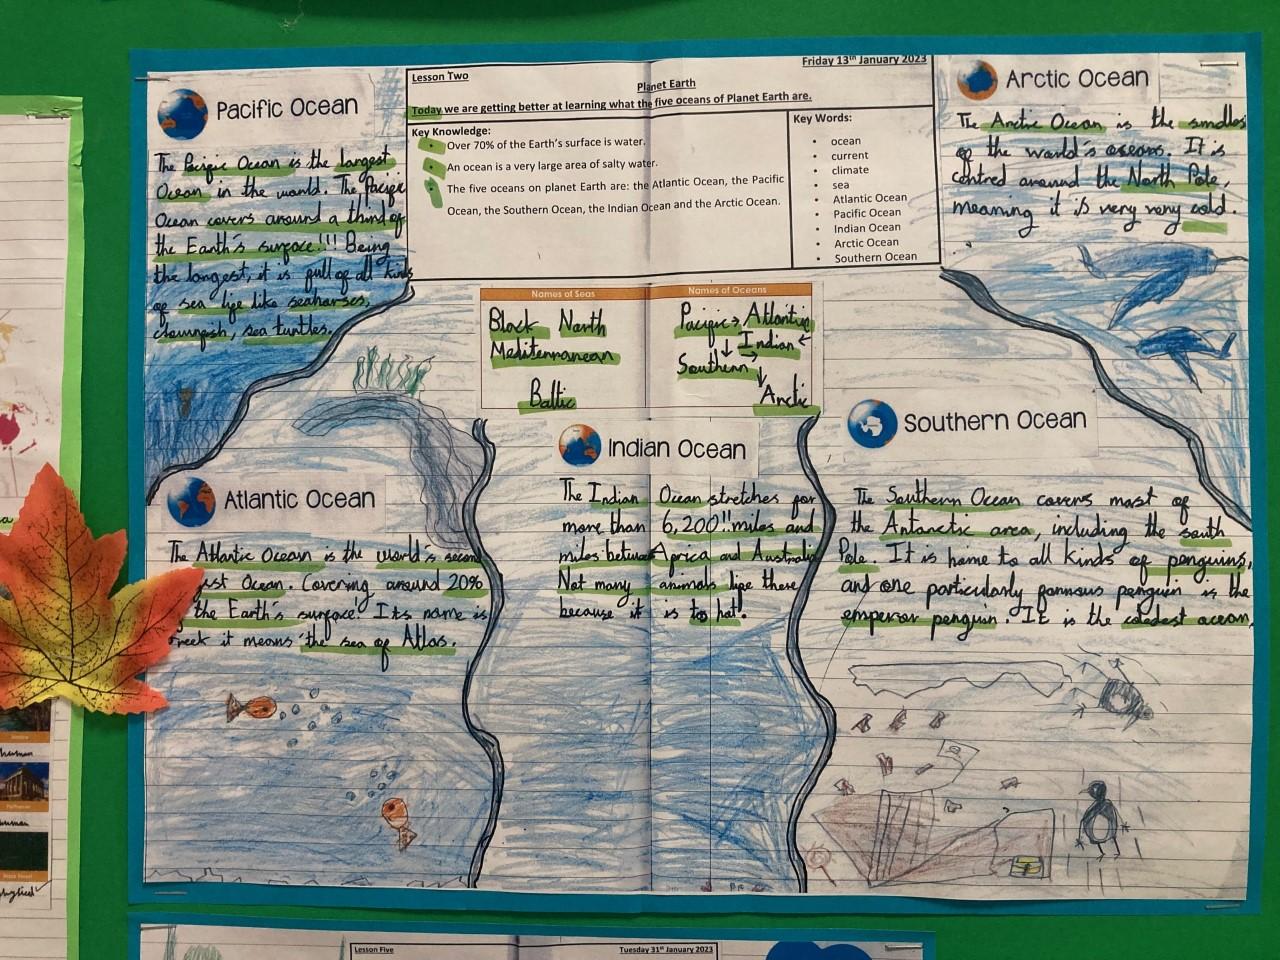 Pacific Ocean
The Pacific Ocean is the largest
Ocean in the world. The Pacific
Ocean covers around a third of
the Earth's surface!!! Being
the longest, it is full of all kinds
of sea life like seahorses,
clownfish, sea turtles.
Lesson Two
Friday 13th January 2023
Planet Earth
Today we are getting better at learning what the five oceans of Planet Earth are.
Key Knowledge:
• Over 70% of the Earth's surface is water.
• An ocean is a very large area of salty water.
• The five oceans on planet Earth are: the Atlantic Ocean, the Pacific
Ocean, the Southern Ocean, the Indian Ocean and the Arctic Ocean.
Key Words:
• ocean
• current
• climate
• sea
• Atlantic Ocean
• Pacific Ocean
• Indian Ocean
• Arctic Ocean
• Southern Ocean
Arctic Ocean
The Arctic Ocean is the smalles
of the world's oseans. It is
centred around the North Pole,
meaning it is very very cold.
Names of Seas
Black North
Mediterranean
Baltic
Names of Oceans
Pacific → Atlantic
Indian
Southern
Arctic
Atlantic Ocean
The Atlantic Ocean is the world's second
Ocean. Covering around 20%
the Earth's surface! Its name is
it means 'the sea of Atlas.
Indian Ocean
The Indian Ocean stretches for
more than 6,200!! miles and
miles between Africa and Australia
Not many animals live there
because it is to hot.
Southern Ocean
The Southern Ocean covers most of
the Antarctic area, including the south
Pole. It is home to all kinds of penguins,
and one particularly famous penguin is the
emperor penguin. It is the coledest ocean,
Lesson Five
Tuesday 31st January 2023